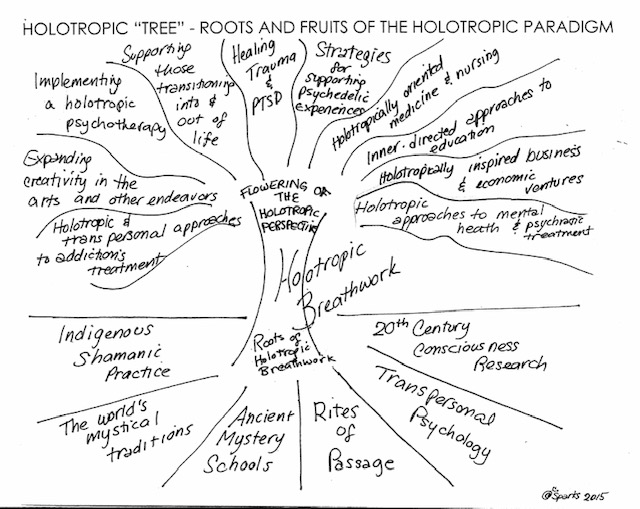 HOLOTROPIC "TREE" - ROOTS AND FRUITS OF THE HOLOTROPIC PARADIGM
Implementing
a holotropic
psychotherapy
Supporting
those
transitioning
into &
out of
life
Healing
Trauma
&
PTSD
Strategies
for
supporting
psychedelic
experiences
Holotropically oriented
medicine & nursing
Inner-directed approaches to
education
Holotropically inspired business
& economic
ventures
Holotropic
approaches to mental
heath & psychiatric
treatment
Expanding
creativity in the
arts and other endeavors
Holotropic &
transpersonal approaches
to addictions
treatment
FLOWERING OF
THE
HOLOTROPIC
PERSPECTIVE
Holotropic
Breathwork
Roots of
Holotropic
Breathwork
Indigenous
Shamanic
Practice
The world's
mystical
traditions
Ancient
Mystery
Schools
Rites
of
Passage
Transpersonal
Psychology
20th Century
Consciousness
Research
Sparks 2015